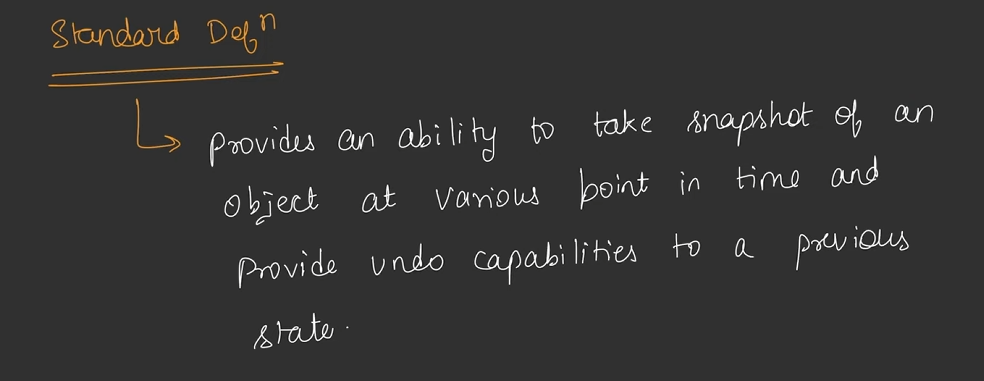 Standard Defⁿ
Provides an ability to take snapshot of an
object at various point in time and
Provide undo capabilities to a previous
state.